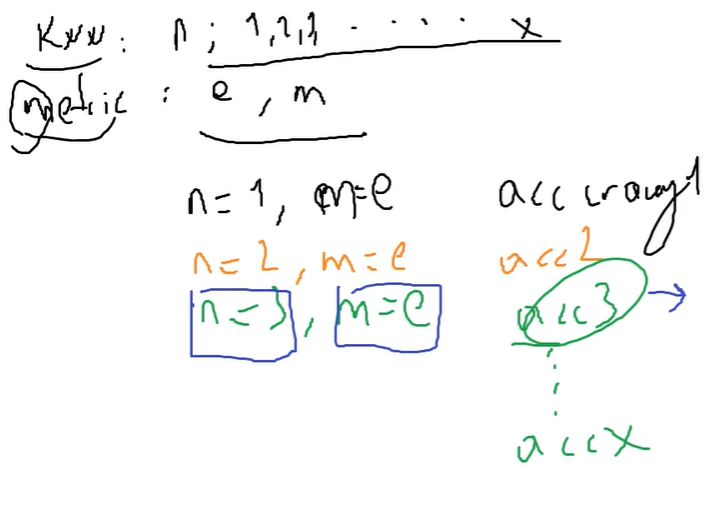 Knn: n; 1,2,3 ..... x
metric : e, m
n=1, m=e accuracy1
n=2, m=e acc2
n=3, m=e acc3
accx